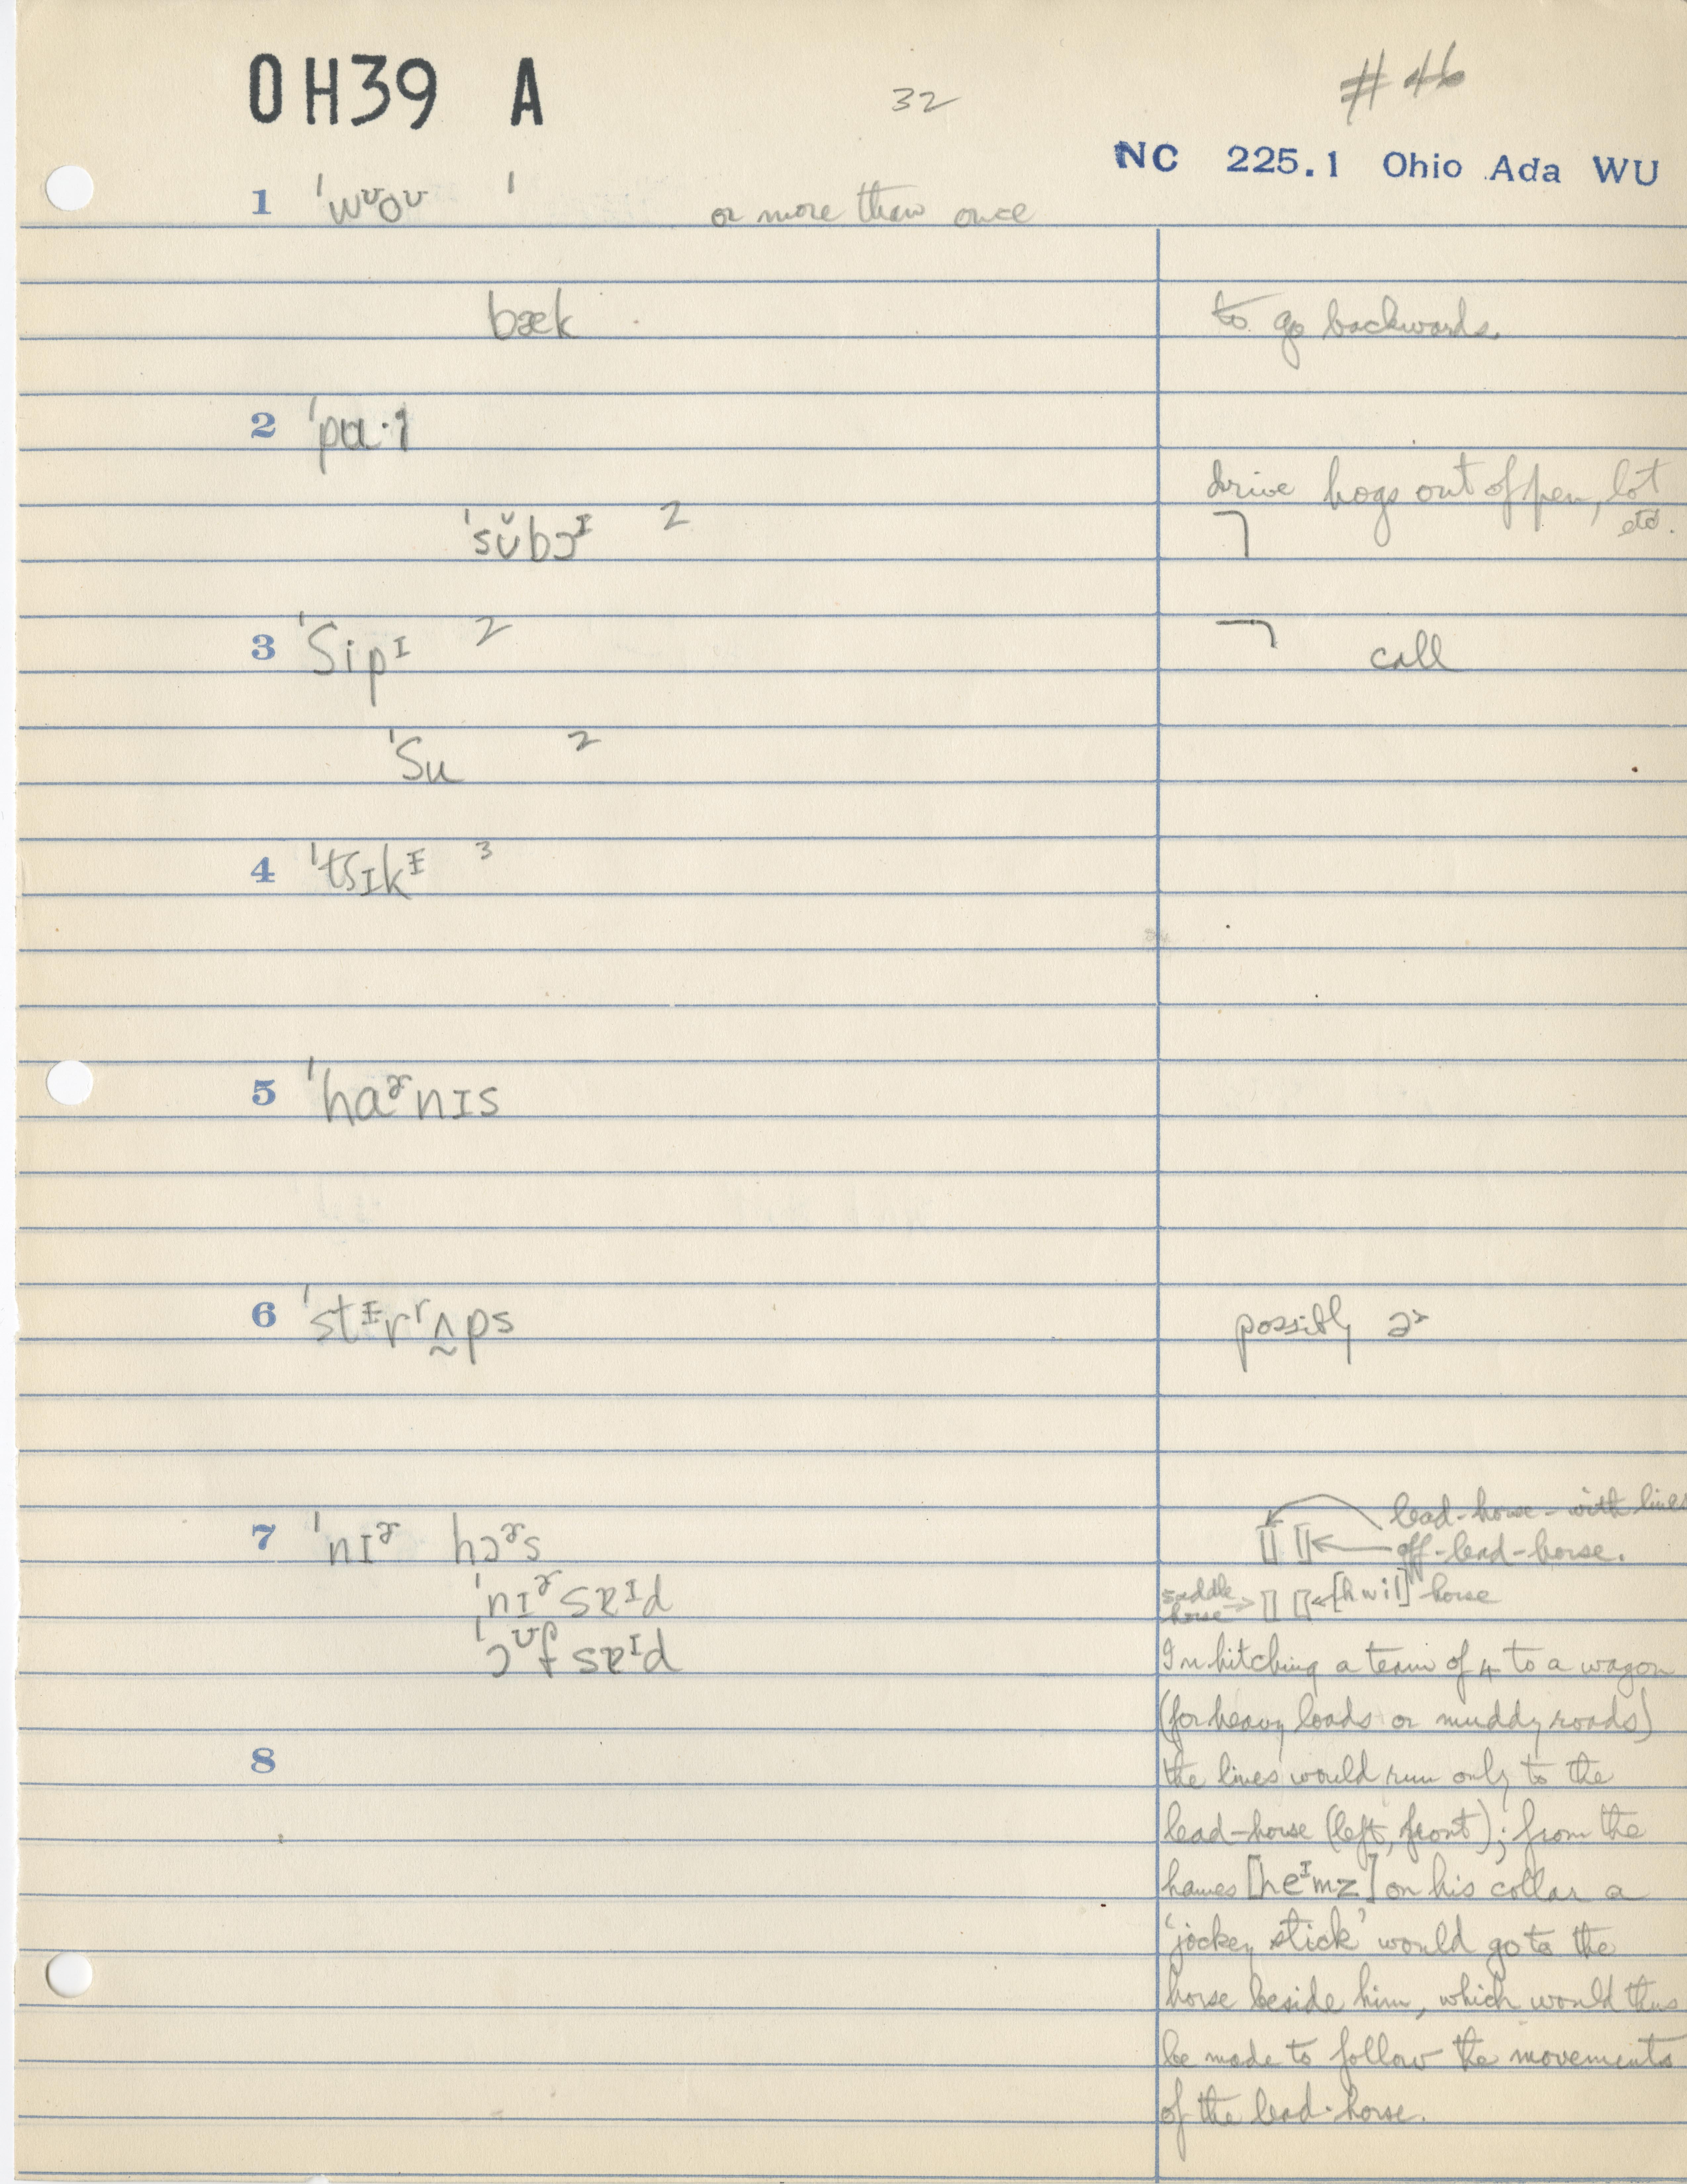 OH39 A
32
# 46
NC 225.1 Ohio Ada WU
1 ˈwᶷoᶷ ˈ or more than once
bæk to go backwards.
2 ˈpɑ·ɪ
drive hogs out of pen, lot
etc.
ˈsŭbɔᴵ 2 ⌝
3 ˈSipᴵ 2 ⌝ call
ˈSu 2
4 ˈtsɪkᴵ 3
5 ˈhaᵊ˞nɪs
6 ˈstᵻrʳʌ̰ps possibly ɚ
lead-horse - with lines
7 ˈnɪᵊ˞ hɔᵊ˞s off-lead-horse.
ˈnɪᵊ˞ sɐᴵd saddle horse → ← [hwil] horse
ˈɔᶷf sɐᴵd
In hitching a team of 4 to a wagon
(for heavy loads or muddy roads)
8 the lines would run only to the
lead-horse (left, front); from the
hames [heᴵmz] on his collar a
'jockey stick' would go to the
horse beside him, which would thus
be made to follow the movements
of the lead-horse.